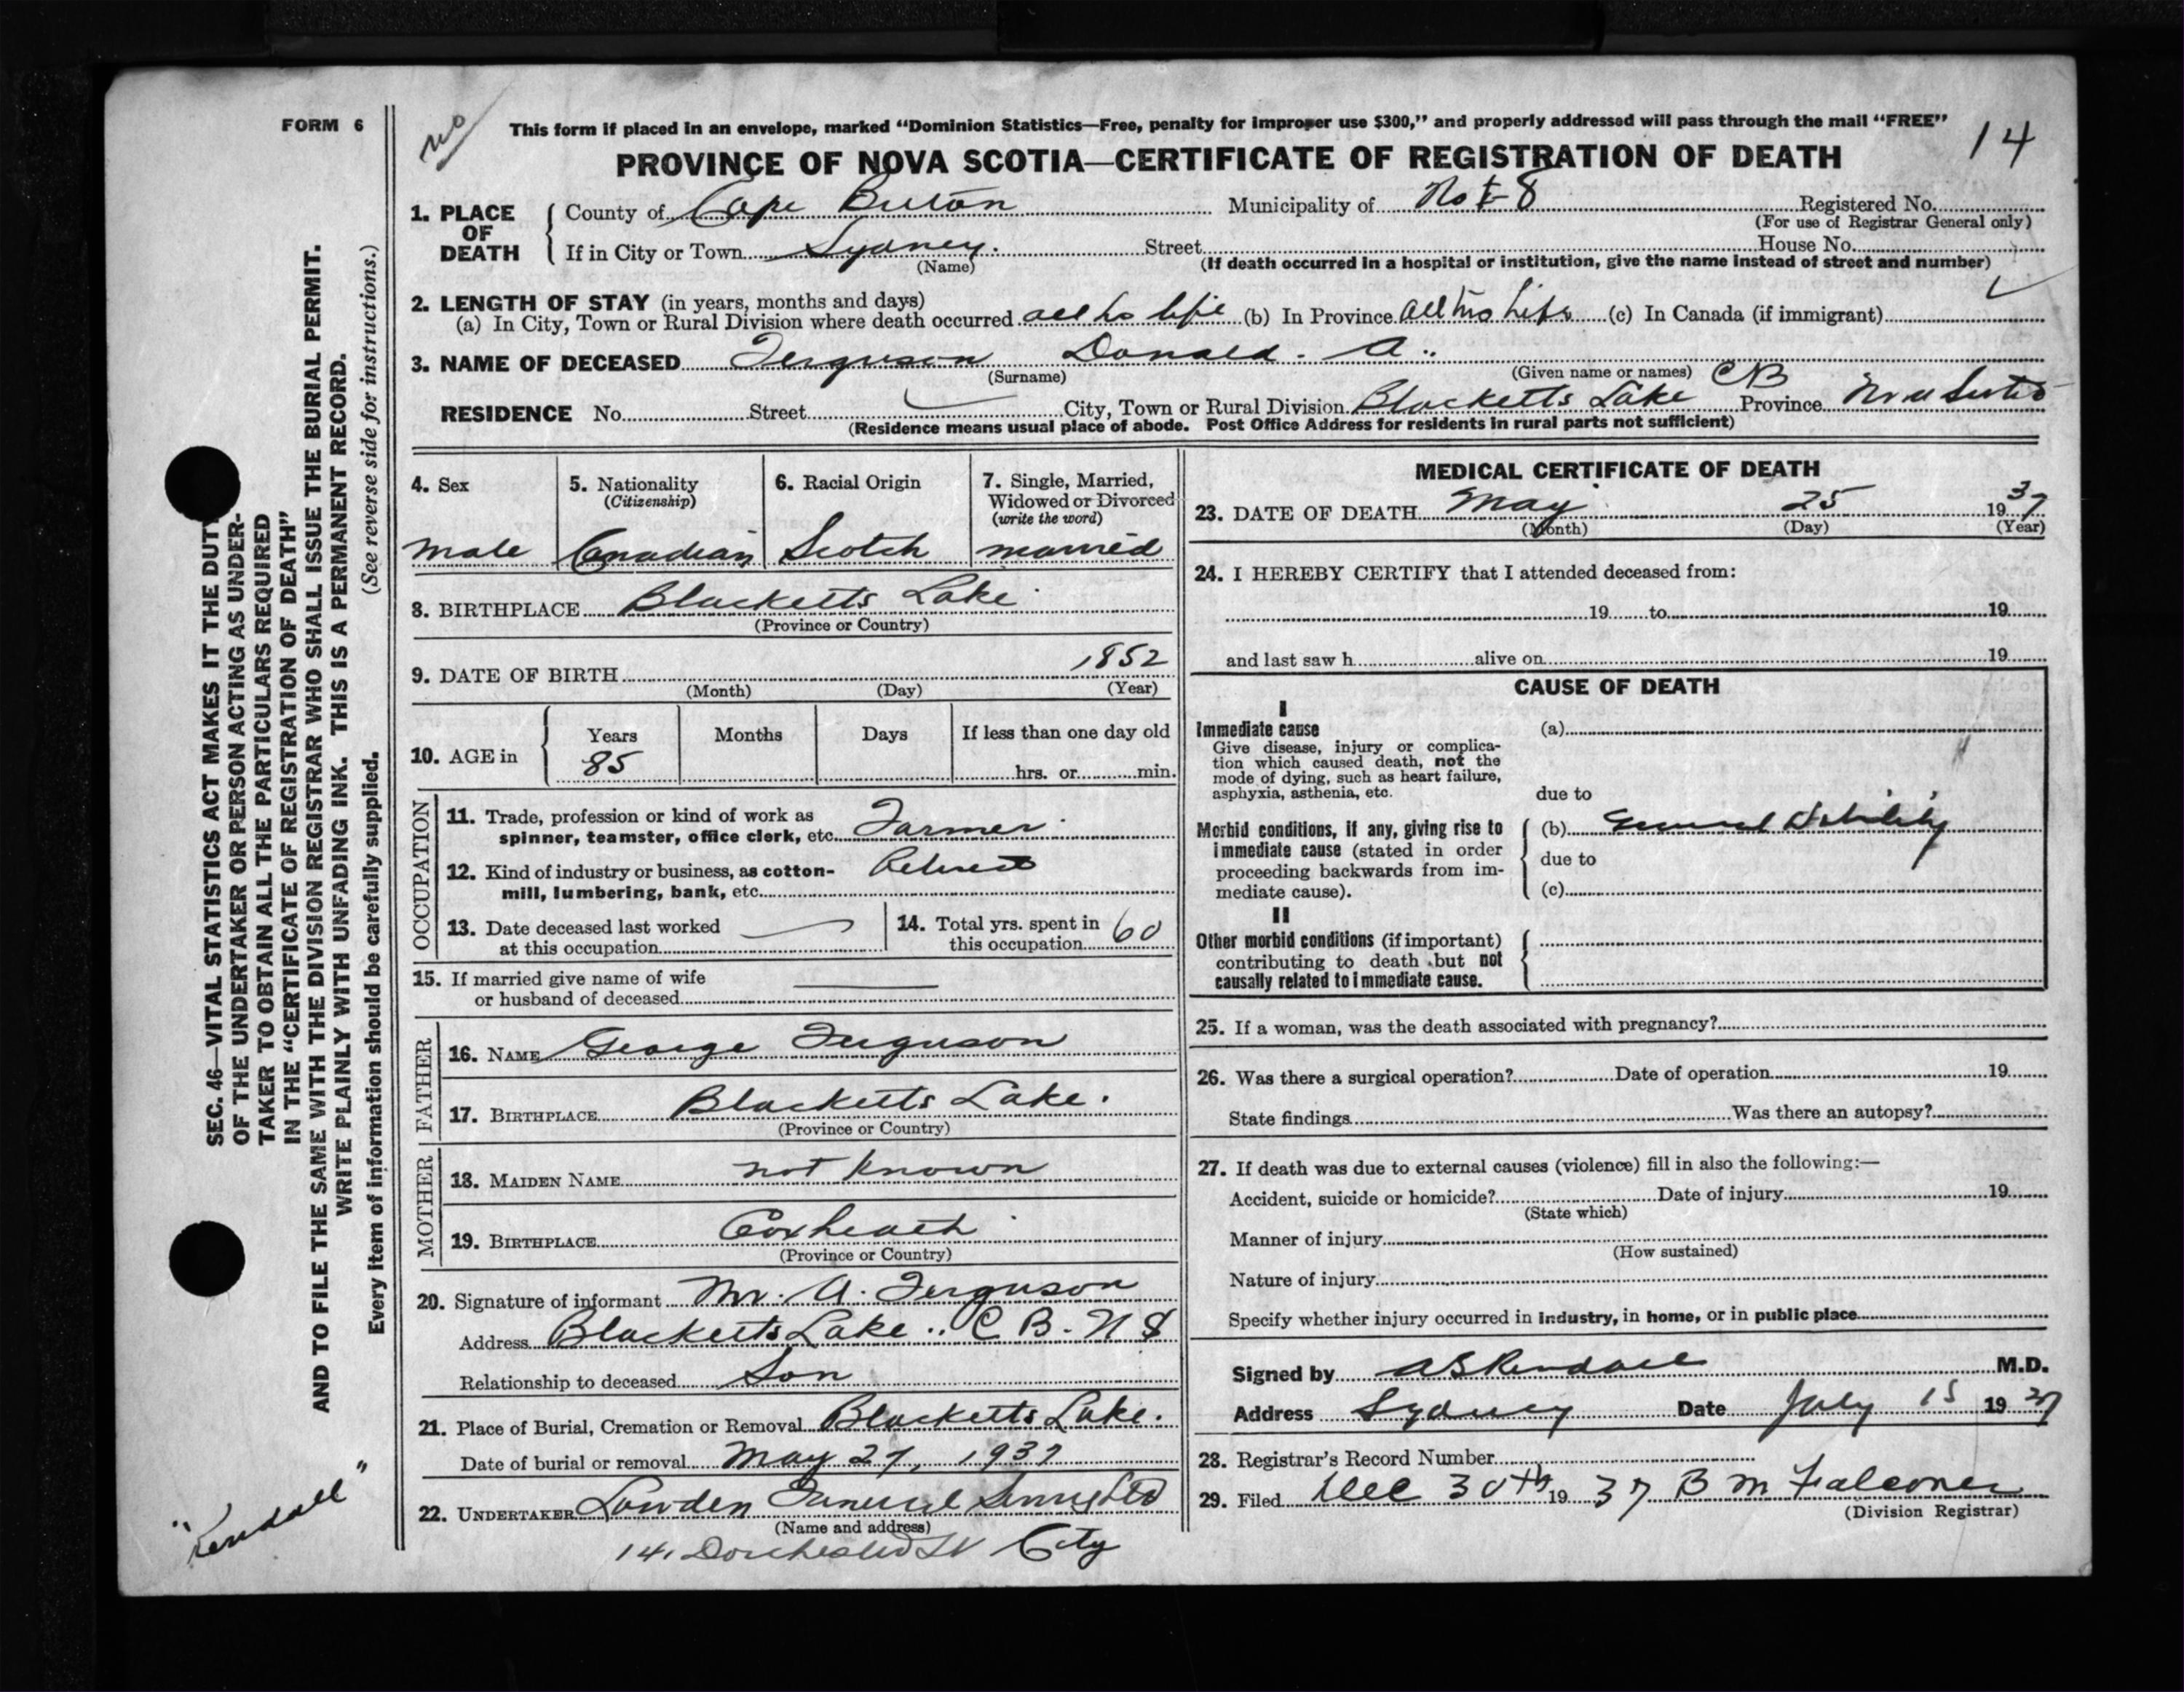 FORM 6
no
This form if placed in an envelope, marked "Dominion Statistics—Free, penalty for improper use $300," and properly addressed will pass through the mail "FREE"
14
PROVINCE OF NOVA SCOTIA—CERTIFICATE OF REGISTRATION OF DEATH
1. PLACE OF DEATH
County of Cape Breton Municipality of No 8 Registered No.
(For use of Registrar General only)
If in City or Town Sydney. Street House No.
(Name) (If death occurred in a hospital or institution, give the name instead of street and number)
2. LENGTH OF STAY (in years, months and days)
(a) In City, Town or Rural Division where death occurred all his life (b) In Province all his Life (c) In Canada (if immigrant)
3. NAME OF DECEASED Ferguson Donald. A.
(Surname) (Given name or names)
CB
RESIDENCE No. Street City, Town or Rural Division Blacketts Lake Province Nova Scotia
(Residence means usual place of abode. Post Office Address for residents in rural parts not sufficient)
4. Sex
male
5. Nationality
(Citizenship)
Canadian
6. Racial Origin
Scotch
7. Single, Married,
Widowed or Divorced
(write the word)
married
8. BIRTHPLACE Blacketts Lake
(Province or Country)
9. DATE OF BIRTH 1852
(Month) (Day) (Year)
10. AGE in
Years Months Days If less than one day old
85 hrs. or min.
OCCUPATION
11. Trade, profession or kind of work as
spinner, teamster, office clerk, etc. Farmer
12. Kind of industry or business, as cotton-
mill, lumbering, bank, etc. Retired
13. Date deceased last worked
at this occupation
14. Total yrs. spent in
this occupation 60
15. If married give name of wife
or husband of deceased
FATHER
16. NAME George Ferguson
17. BIRTHPLACE Blacketts Lake.
(Province or Country)
MOTHER
18. MAIDEN NAME not known
19. BIRTHPLACE Coxheath
(Province or Country)
20. Signature of informant Mr. A. Ferguson
Address Blacketts Lake.. C B. N S
Relationship to deceased Son
21. Place of Burial, Cremation or Removal Blacketts Lake.
Date of burial or removal May 27, 1937
22. UNDERTAKER Lowden Funeral Service Ltd
(Name and address)
14. Dorchester St City
MEDICAL CERTIFICATE OF DEATH
23. DATE OF DEATH May 25 1937
(Month) (Day) (Year)
24. I HEREBY CERTIFY that I attended deceased from:
19 to 19
and last saw h alive on 19
CAUSE OF DEATH
I
Immediate cause (a)
Give disease, injury or complica-
tion which caused death, not the
mode of dying, such as heart failure,
asphyxia, asthenia, etc.
due to
Morbid conditions, if any, giving rise to
immediate cause (stated in order
proceeding backwards from im-
mediate cause).
(b) General Debility
due to
(c)
II
Other morbid conditions (if important)
contributing to death but not
causally related to immediate cause.
25. If a woman, was the death associated with pregnancy?
26. Was there a surgical operation? Date of operation 19
State findings Was there an autopsy?
27. If death was due to external causes (violence) fill in also the following:—
Accident, suicide or homicide? Date of injury 19
(State which)
Manner of injury
(How sustained)
Nature of injury
Specify whether injury occurred in industry, in home, or in public place
Signed by A S Kendall M.D.
Address Sydney Date July 15 1937
28. Registrar's Record Number
29. Filed Dec 30th 1937 B M Falconer
(Division Registrar)
SEC. 46—VITAL STATISTICS ACT MAKES IT THE DUTY
OF THE UNDERTAKER OR PERSON ACTING AS UNDER-
TAKER TO OBTAIN ALL THE PARTICULARS REQUIRED
IN THE "CERTIFICATE OF REGISTRATION OF DEATH"
AND TO FILE THE SAME WITH THE DIVISION REGISTRAR WHO SHALL ISSUE THE BURIAL PERMIT.
WRITE PLAINLY WITH UNFADING INK. THIS IS A PERMANENT RECORD.
Every item of information should be carefully supplied. (See reverse side for instructions.)
"Kendall"